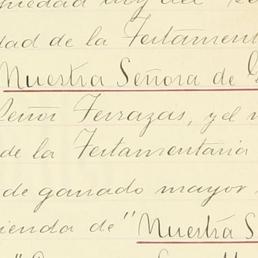 dad de la Testamenta
Nuestra Señora de
Señor Terrazas, y el
de la Testamentaria
de ganado mayor
ienda de "Nuestra S